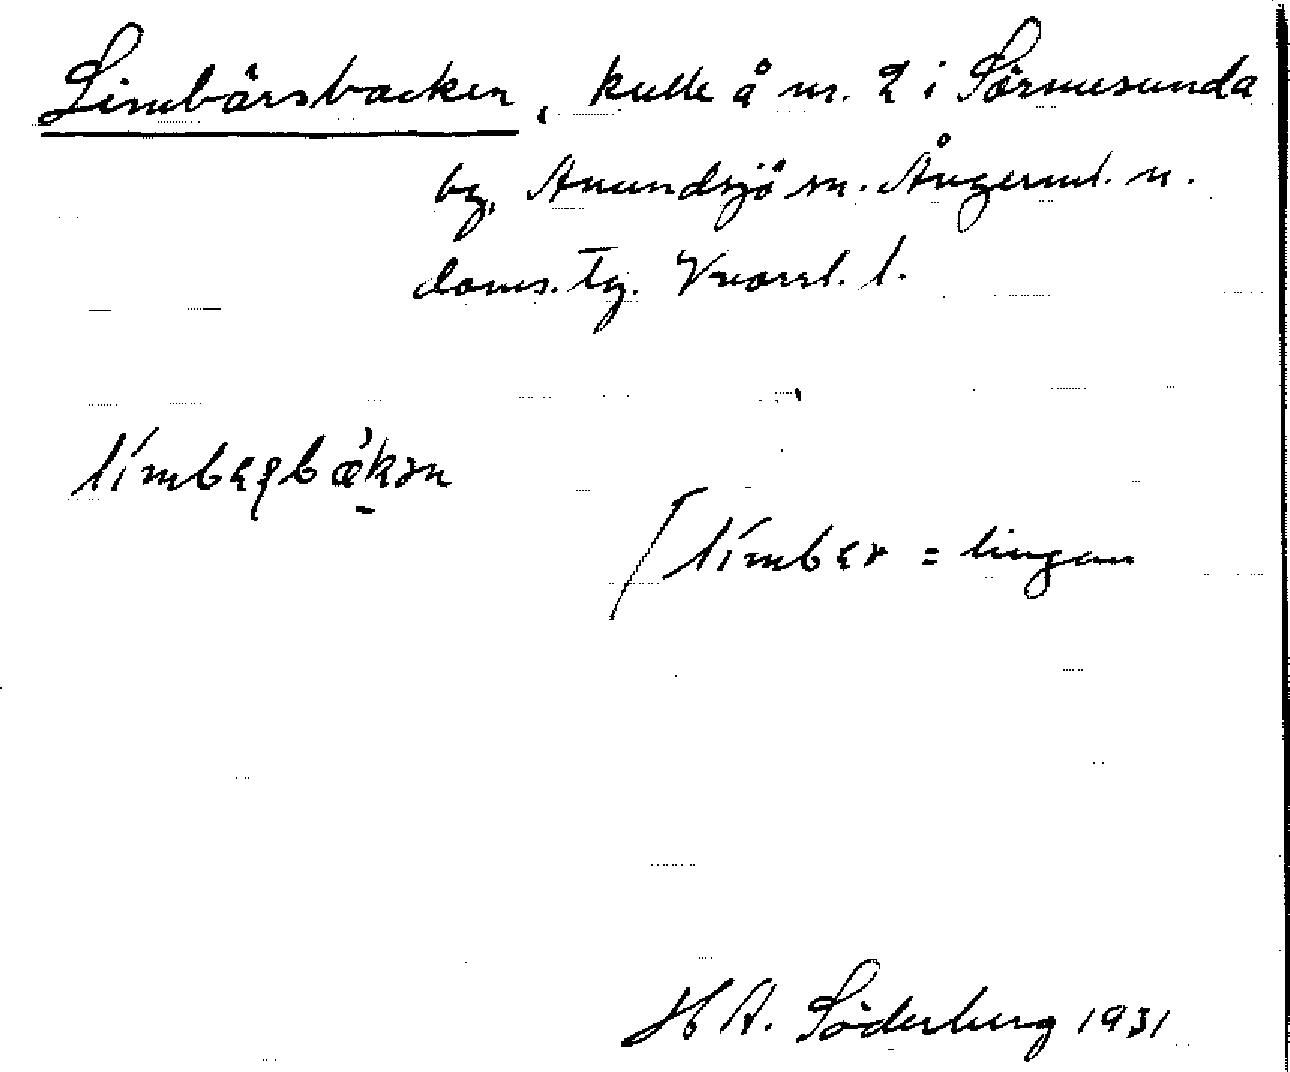 Limbärsbacken, kulle å nr. 2 i Sörmesunda
by, Anundsjö sn. Ångerml. n.
doms. tg. Vnorrl. l.
límbɛʂbǽkən
[límbɛr = lingon
H A. Söderberg 1931